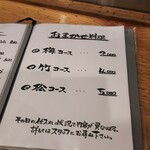 おまかせ料理
梅コース ･･･ 7,000
竹コース ･･･ 6,000
松コース ･･･ 5,000
その日の仕入れ状況で内容が異なります。
詳しくはスタッフにお尋ね下さい。